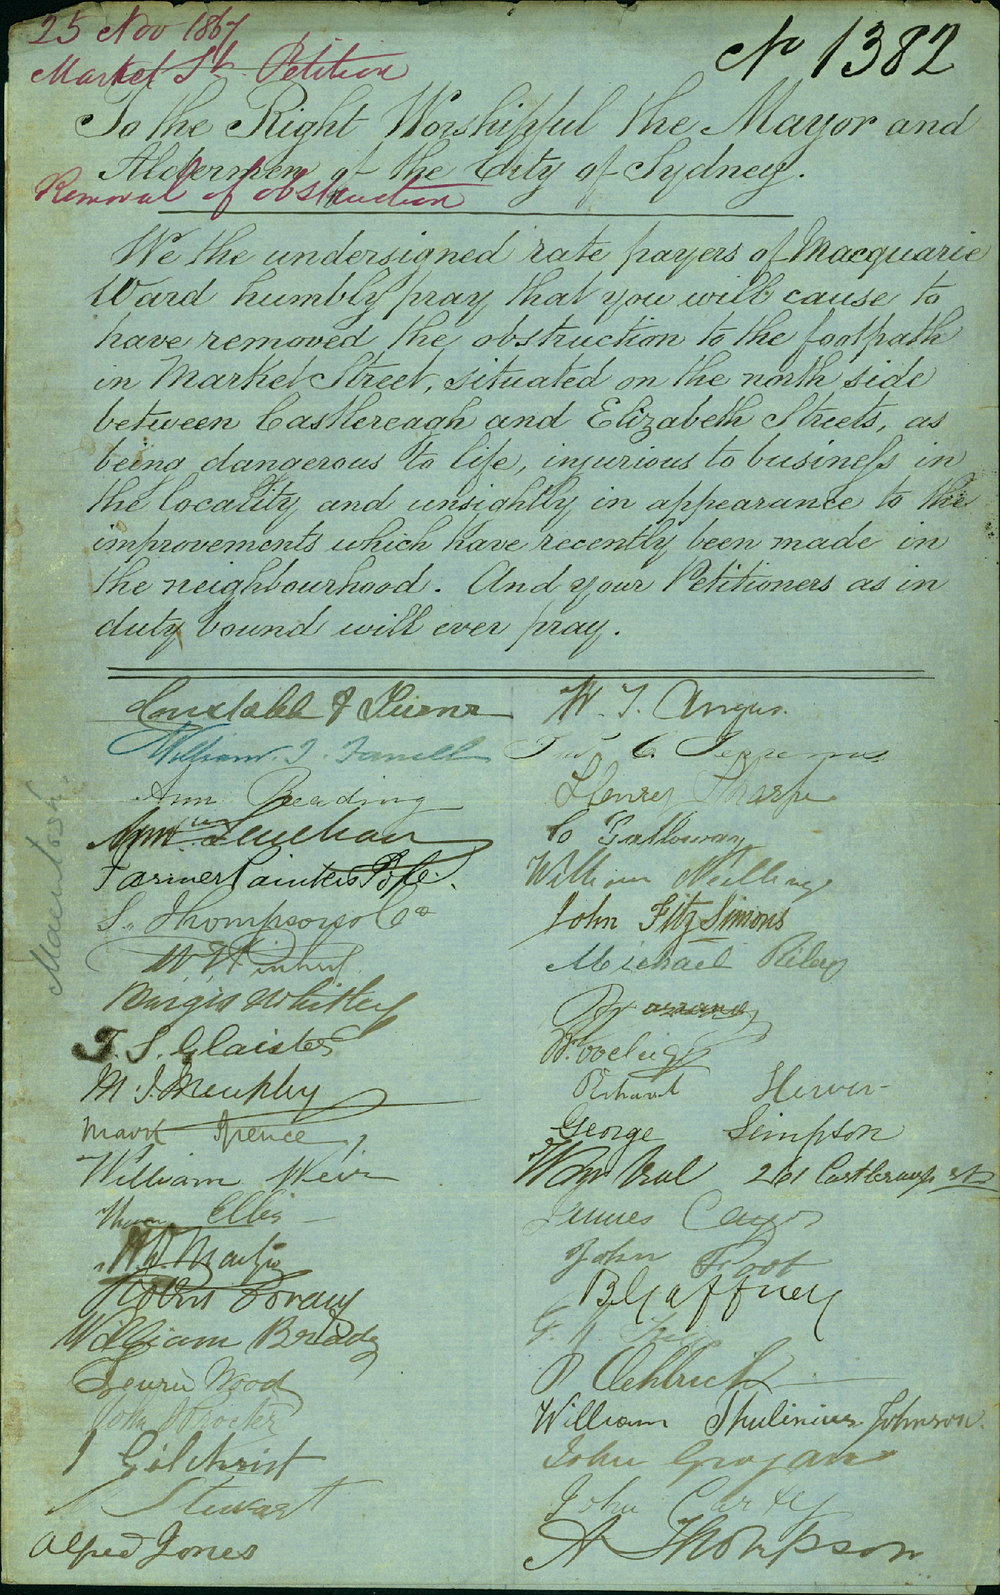 25 Nov 1867
No 1382
Market St Petition
To the Right Worshipful the Mayor and
Aldermen of the City of Sydney.
Removal of obstruction
We the undersigned rate payers of Macquarie
Ward humbly pray that you will cause to
have removed the obstruction to the footpath
in Market Street, situated on the north side
between Castlereagh and Elizabeth Streets, as
being dangerous to life, injurious to business in
the locality and unsightly in appearance to the
improvements which have recently been made in
the neighbourhood. And your Petitioners as in
duty bound will ever pray.
William. J. Farrell
Ann Reading
Farmer Painter & Pope.
S. Thompson & Co
Burgis Whitley
T. S. Glaister
M. J. Murphy
Mark Spence
William Weir
Ellis
W. Martin
William Briddy
Wood
John
J Gilchrist
Stewart
Alfred Jones
Macintosh
W. T. Angus.
Henry Sharpe
Galloway
William
John FitzSimons
Michael Riley
Richard
George Simpson
261 Castlereagh St
James
John Root
B Gaffney
P Oehlrich
William Thulinius Johnson.
John Grogan
John Carty
A Thompson